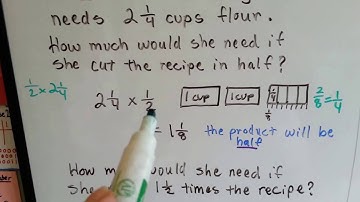 needs 2 1/4 cups flour.
How much would she need if
she cut the recipe in half?
1/2 × 2 1/4
2 1/4 × 1/2
1 cup
1 cup
1/4
1/8
2/8 = 1/4
= 1 1/8 the product will be
half
would she need if
she 1 1/2 times the recipe?